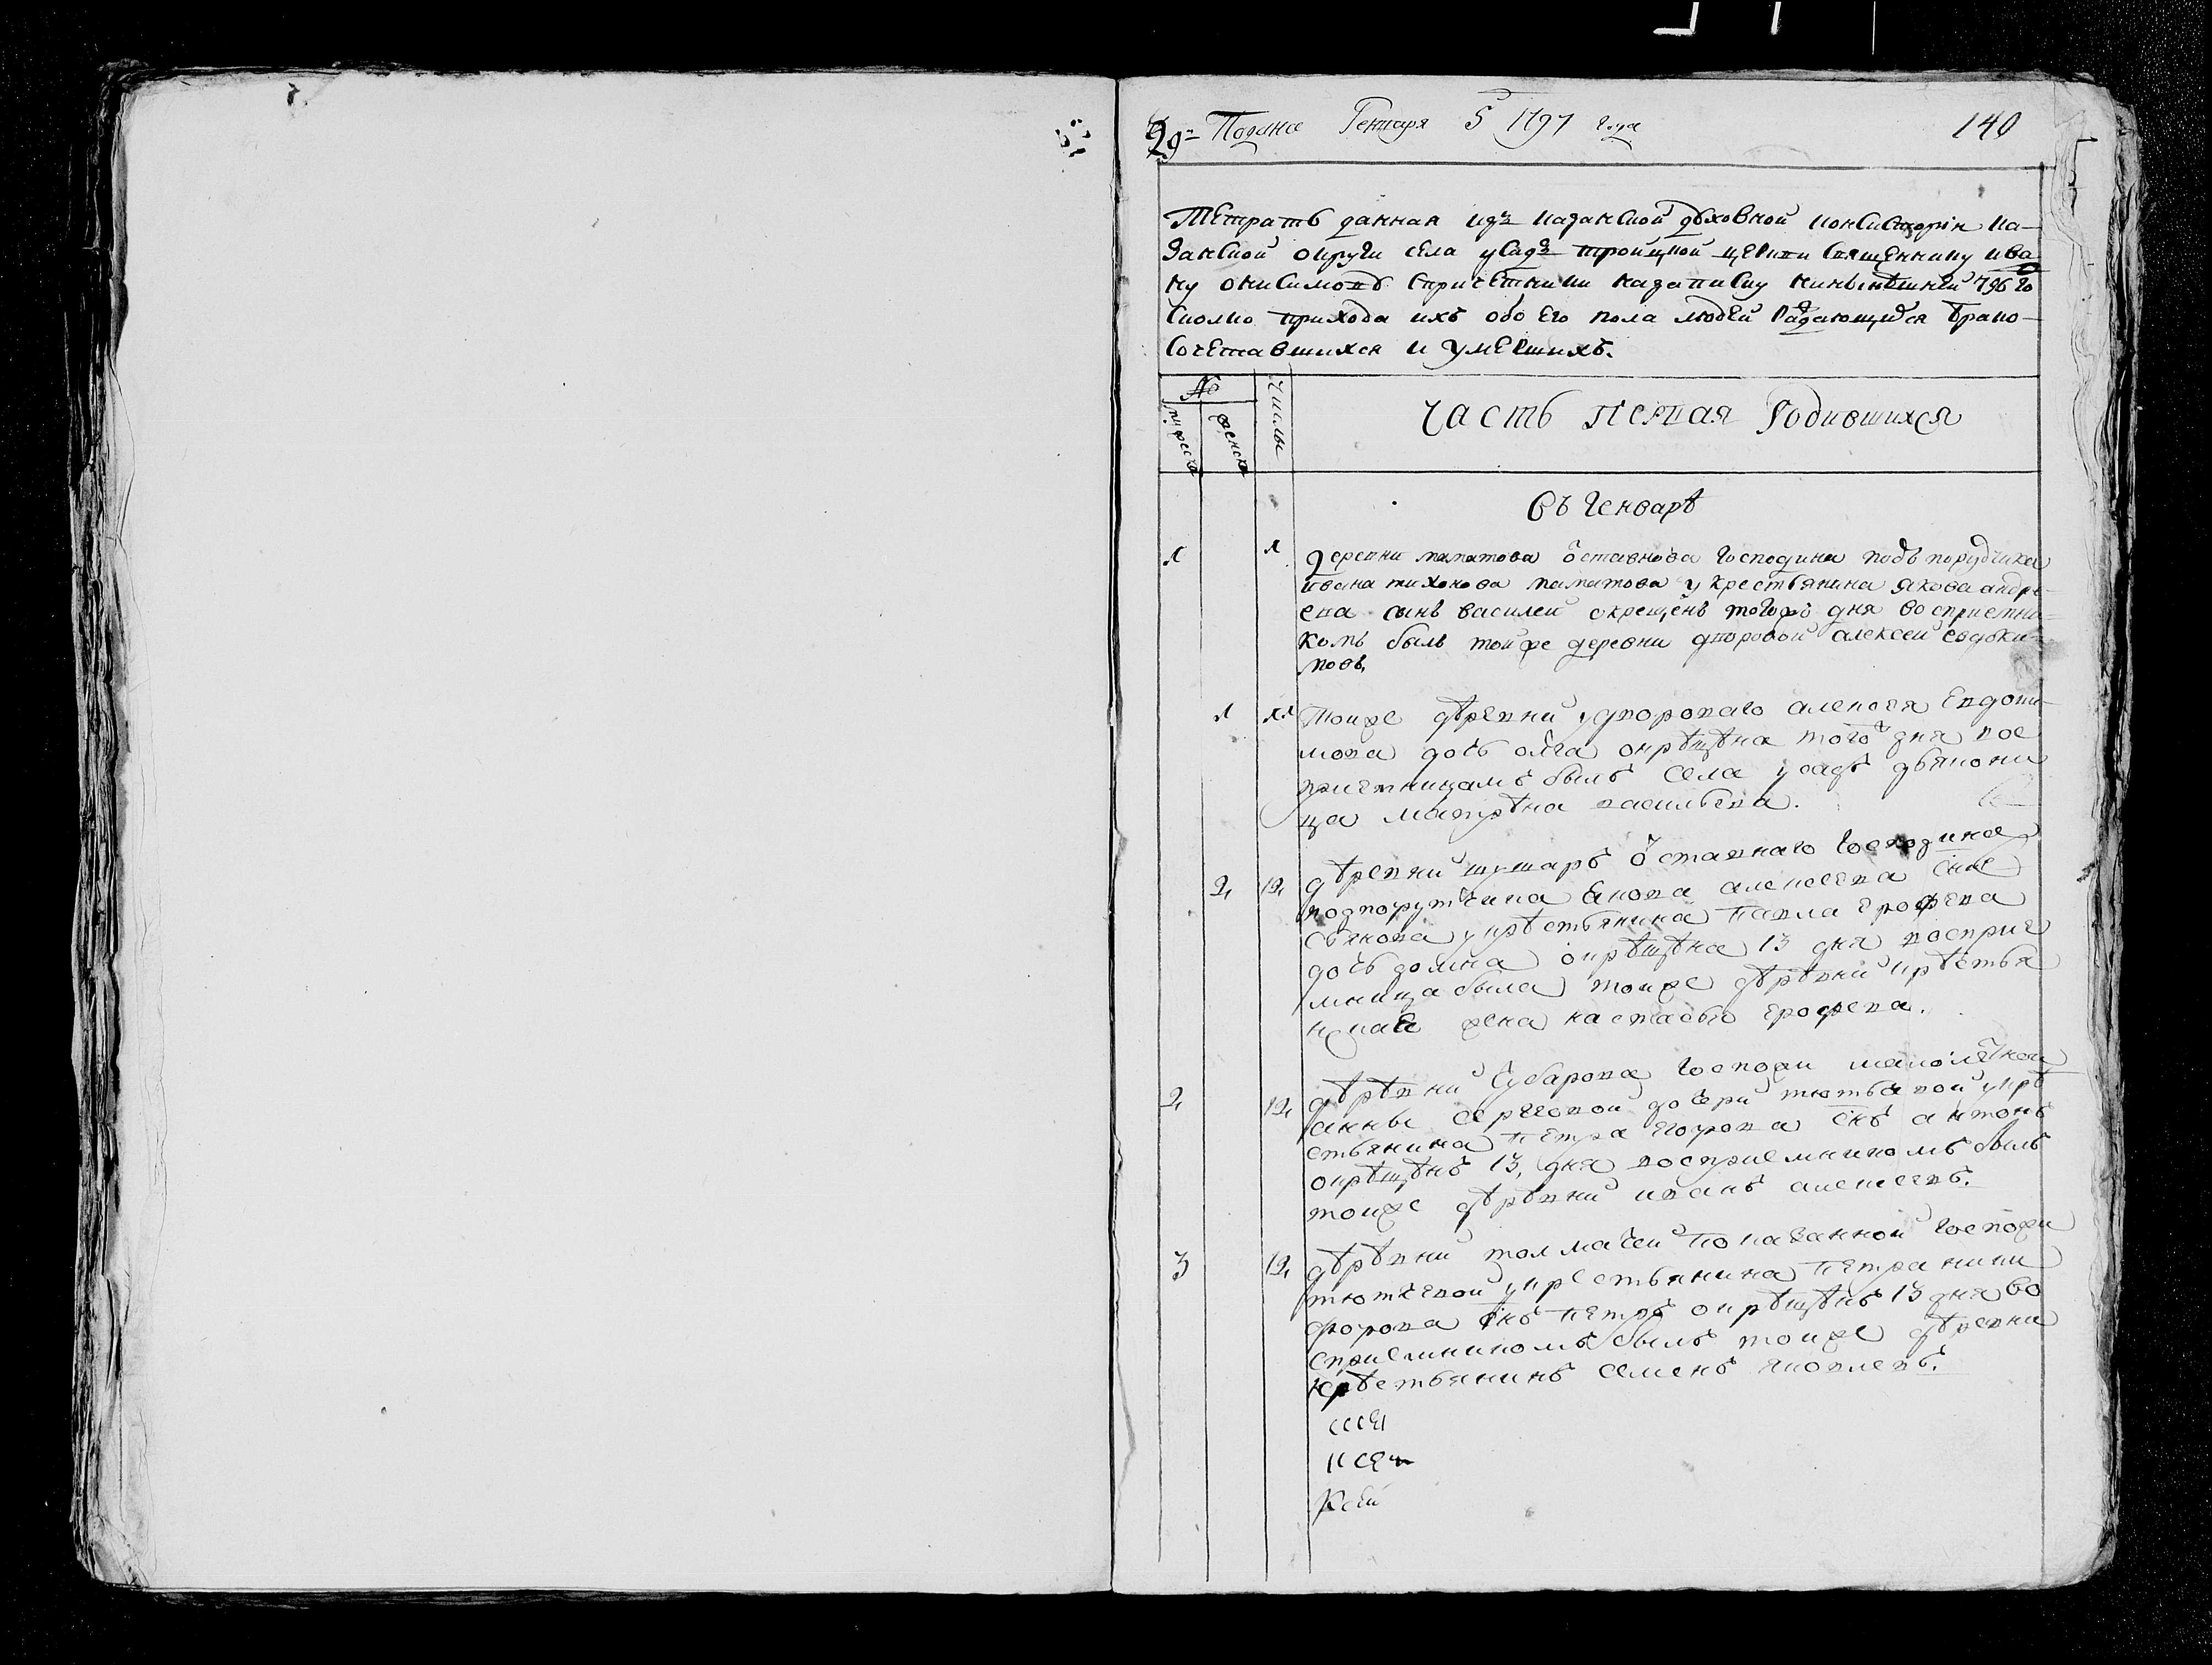 29 Подана Генваря 5 1797 года 140
Тетрать данная изъ казанской духовной консисторіи ка-
занской округи села усадъ троицкой церкви священнику ива
ну онисимовъ спричетники назаписку нинешнеи 796 го
сколко прихода ихъ обо его пола людей раждающихся брако-
сочетавшихся и умершихъ.
№ Числы
мужеска женска
Часть первая Родившихся
Въ Генварѣ
1 1 деревни паматова отставнова господина подъ порудчика
ивана тихонова паматова у крестьянина якова андре-
ева сынъ василеи окрещенъ тогожъ дня восприемни-
комъ былъ тоиже деревни дворовои алексеи евдоки-
мовъ
1 11 Тоиже дѣревни удворового алексея Евдоки-
мова дочь олга окрѣщѣна того дня вос
приемницамъ былъ села усадъ дьякони
ца матрѣна васильева.
2 12 дѣревни шушаръ отставнаго Господина
подпорутчика алексеева сне
у крѣстьянина Павла ерофеева
дочь домна окрѣщѣна 13 дня восприе
мница была тоиже дѣрѣвни крѣстья
жена настасья ерофева.
2 12 дѣрѣвни Чубарова Госпожи малолѣтнои
анны сергеевои дочери у крѣ
стьянина петра егорова снъ антонъ
окрѣщѣнъ 13 дня восприемникомъ былъ
тоиже дѣрѣвни иванъ алексеевъ.
3 12 дѣрѣвни толмачеи показаннои Госпожи
у крестьянина петра ники
форова снъ петръ окрѣщѣнъ 13 дня во
сприемникомъ былъ тоиже дѣревни
крѣстьянинъ семенъ яковлевъ.